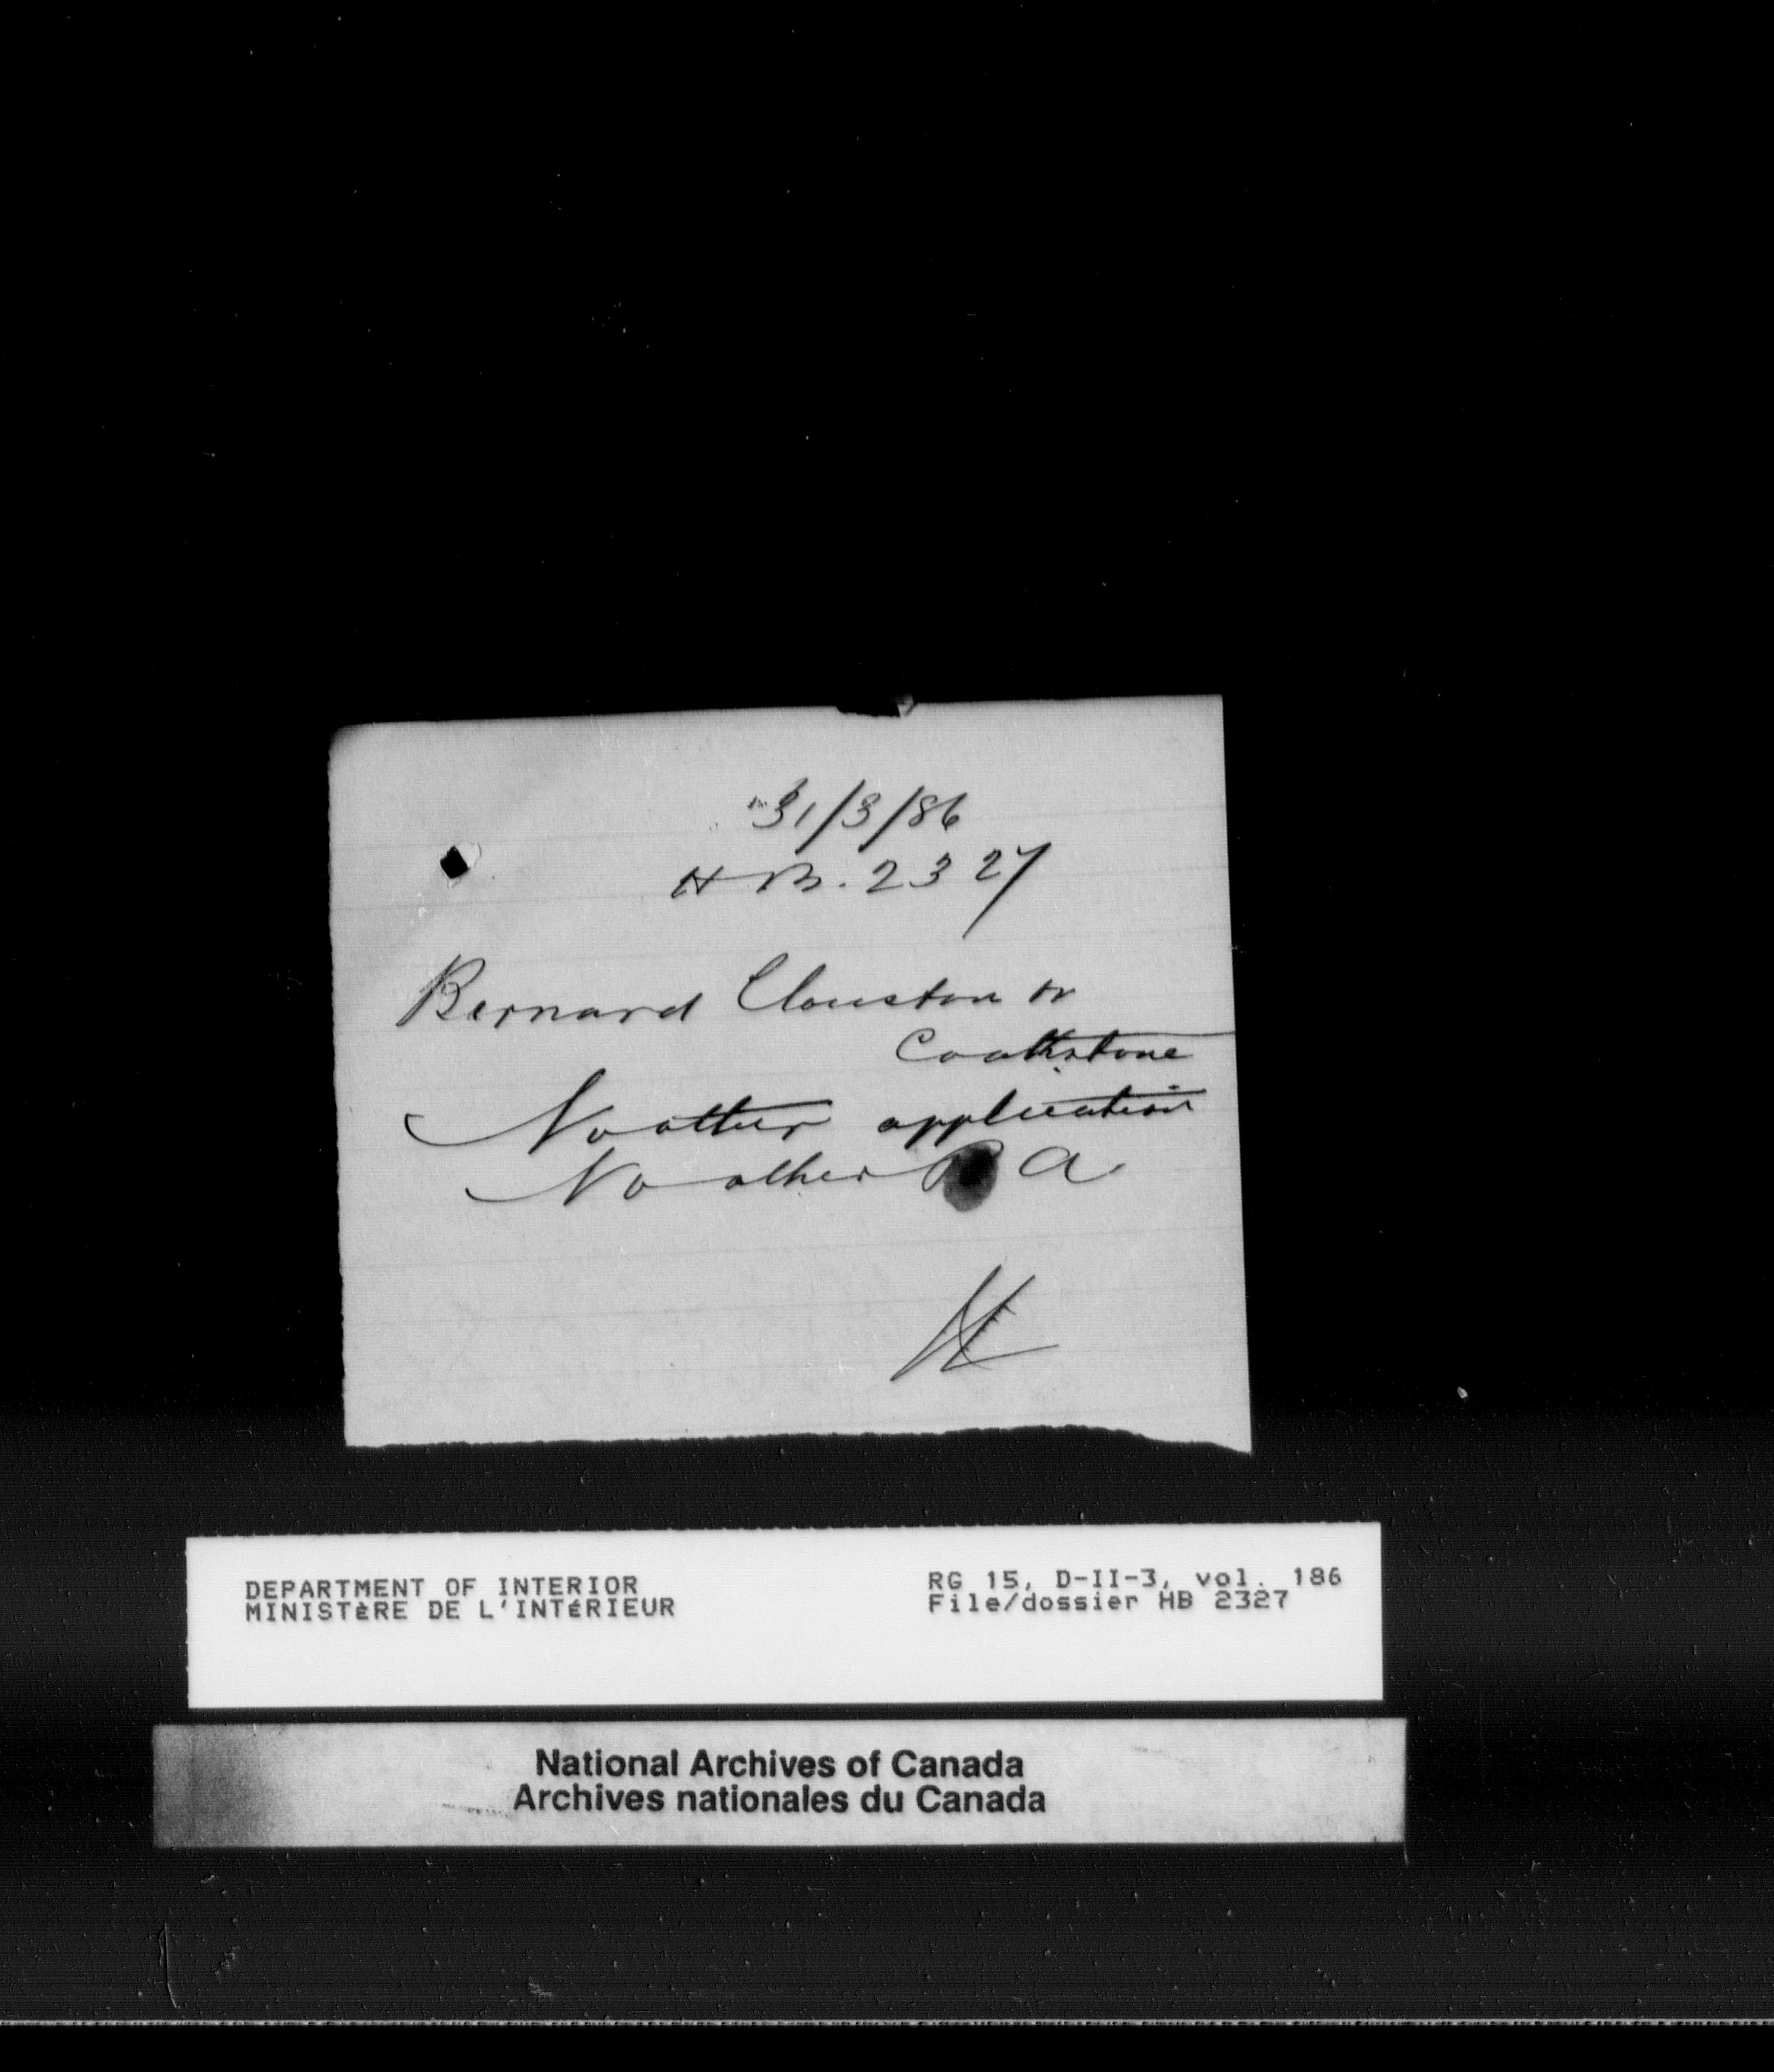 31/3/86
H B. 2327
Bernard Clouston or
Cookstone
No other application
No other P A
DEPARTMENT OF INTERIOR
MINISTÈRE DE L'INTÉRIEUR
RG 15, D-II-3, vol. 186
File/dossier HB 2327
National Archives of Canada
Archives nationales du Canada